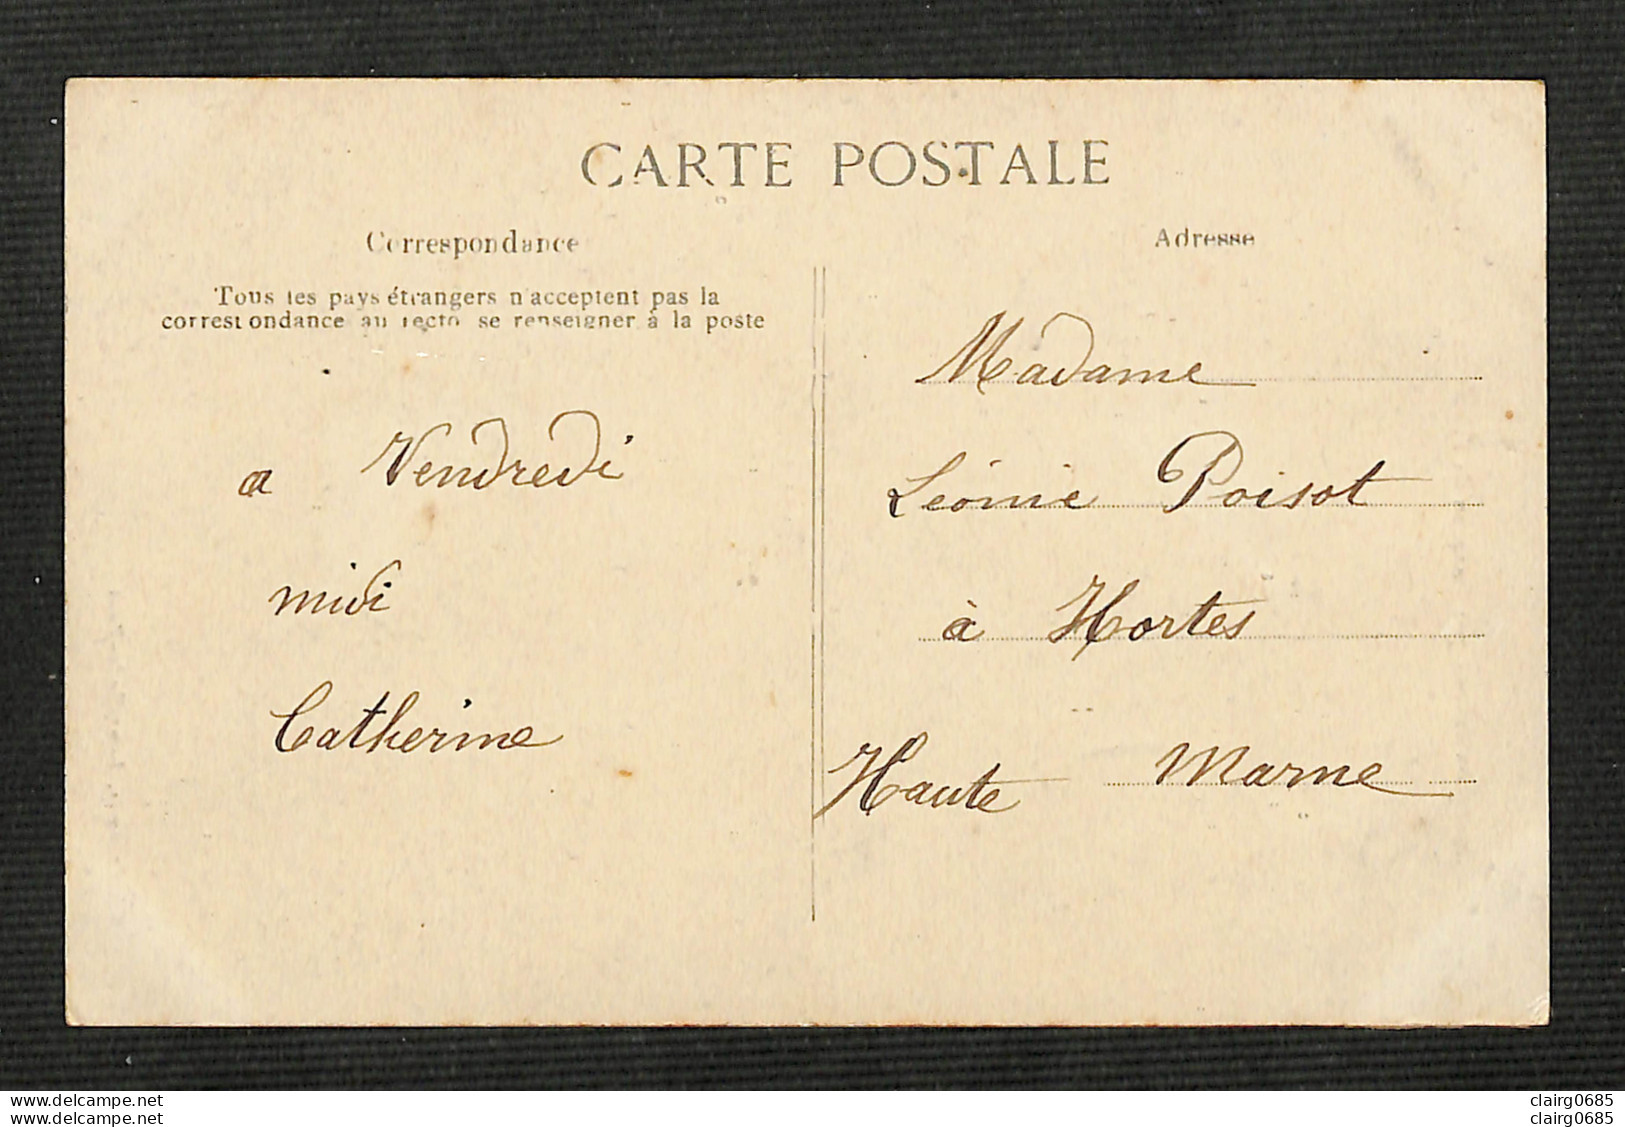 CARTE POSTALE
Correspondance
Tous les pays étrangers n'acceptent pas la
correspondance au recto se renseigner à la poste
a Vendredi
midi
Catherine
Adresse
Madame
Léonie Poisot
à Hortes
Haute Marne
www.delcampe.net
www.delcampe.net
clairg0685
clairg0685